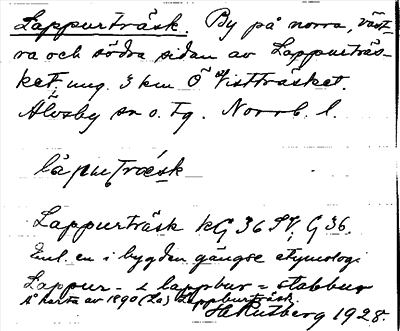 Lappurträsk. By på norra, väst-
ra och södra sidan av Lappurträs-
ket, ung. 3 km Ö Vistträsket.
Älvsby sn o. tg. Norrb. l.
Lappurträsk KG 36 SV, G 36.
Enl. en i bygden gängse etymologi
Lappur- i lappbur = stabbur
å karta av 1890 (La) Lappburträsk.
H. Rutberg 1928.